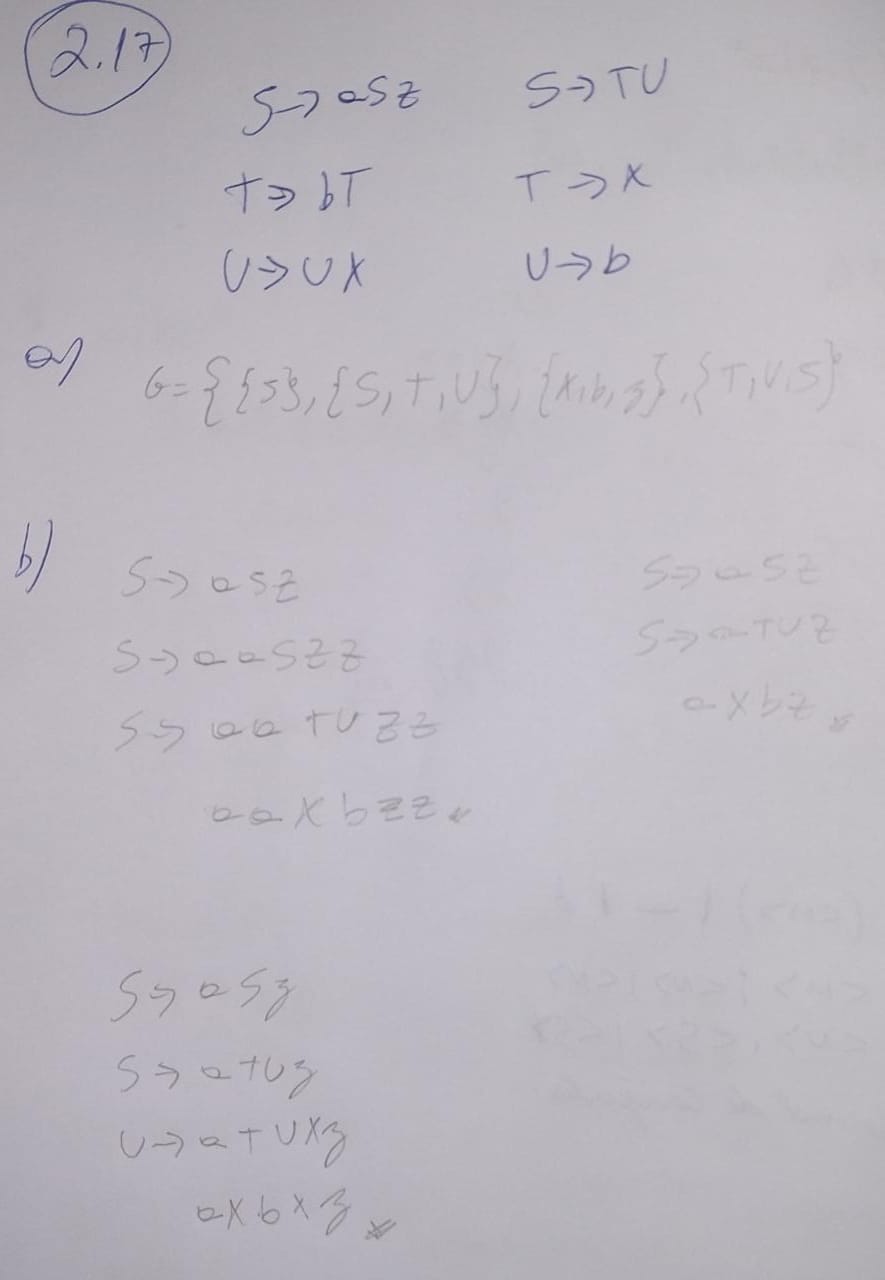 2.17
S→aSz S→TU
T→bT T→x
U→Ux U→b
a) G={{S},{S,T,U},{x,b,z},{T,U,S}
b) S→aSz S→aSz
S→aaSzz S→aTUz
S→aaTUzz axbz
aaxbzz
S→aSz
S→aTUz
U→aTUxz
axbxz